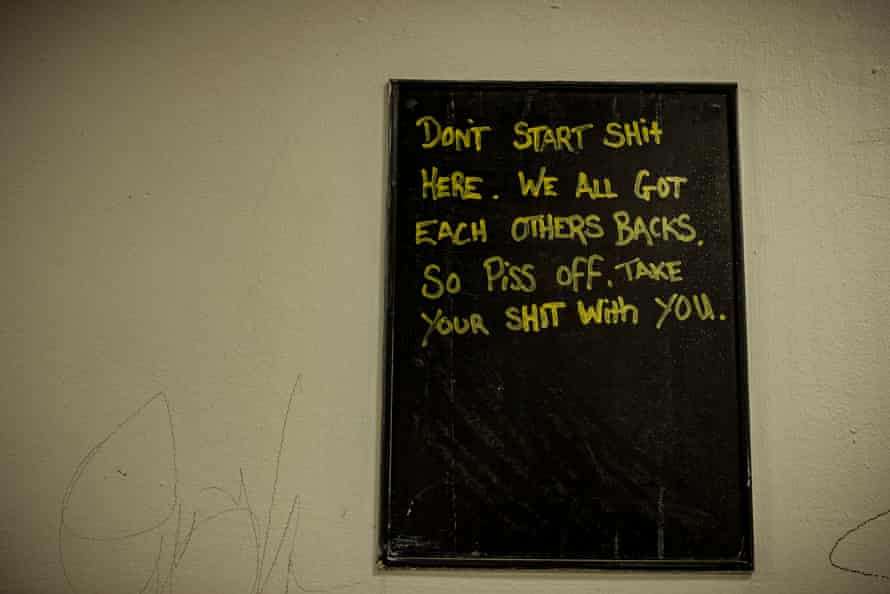 DON'T START SHit
HERE. WE ALL GOT
EACH OTHERS BACKS.
SO PiSS OFF. TAKE
YOUR SHIT WitH YOU.